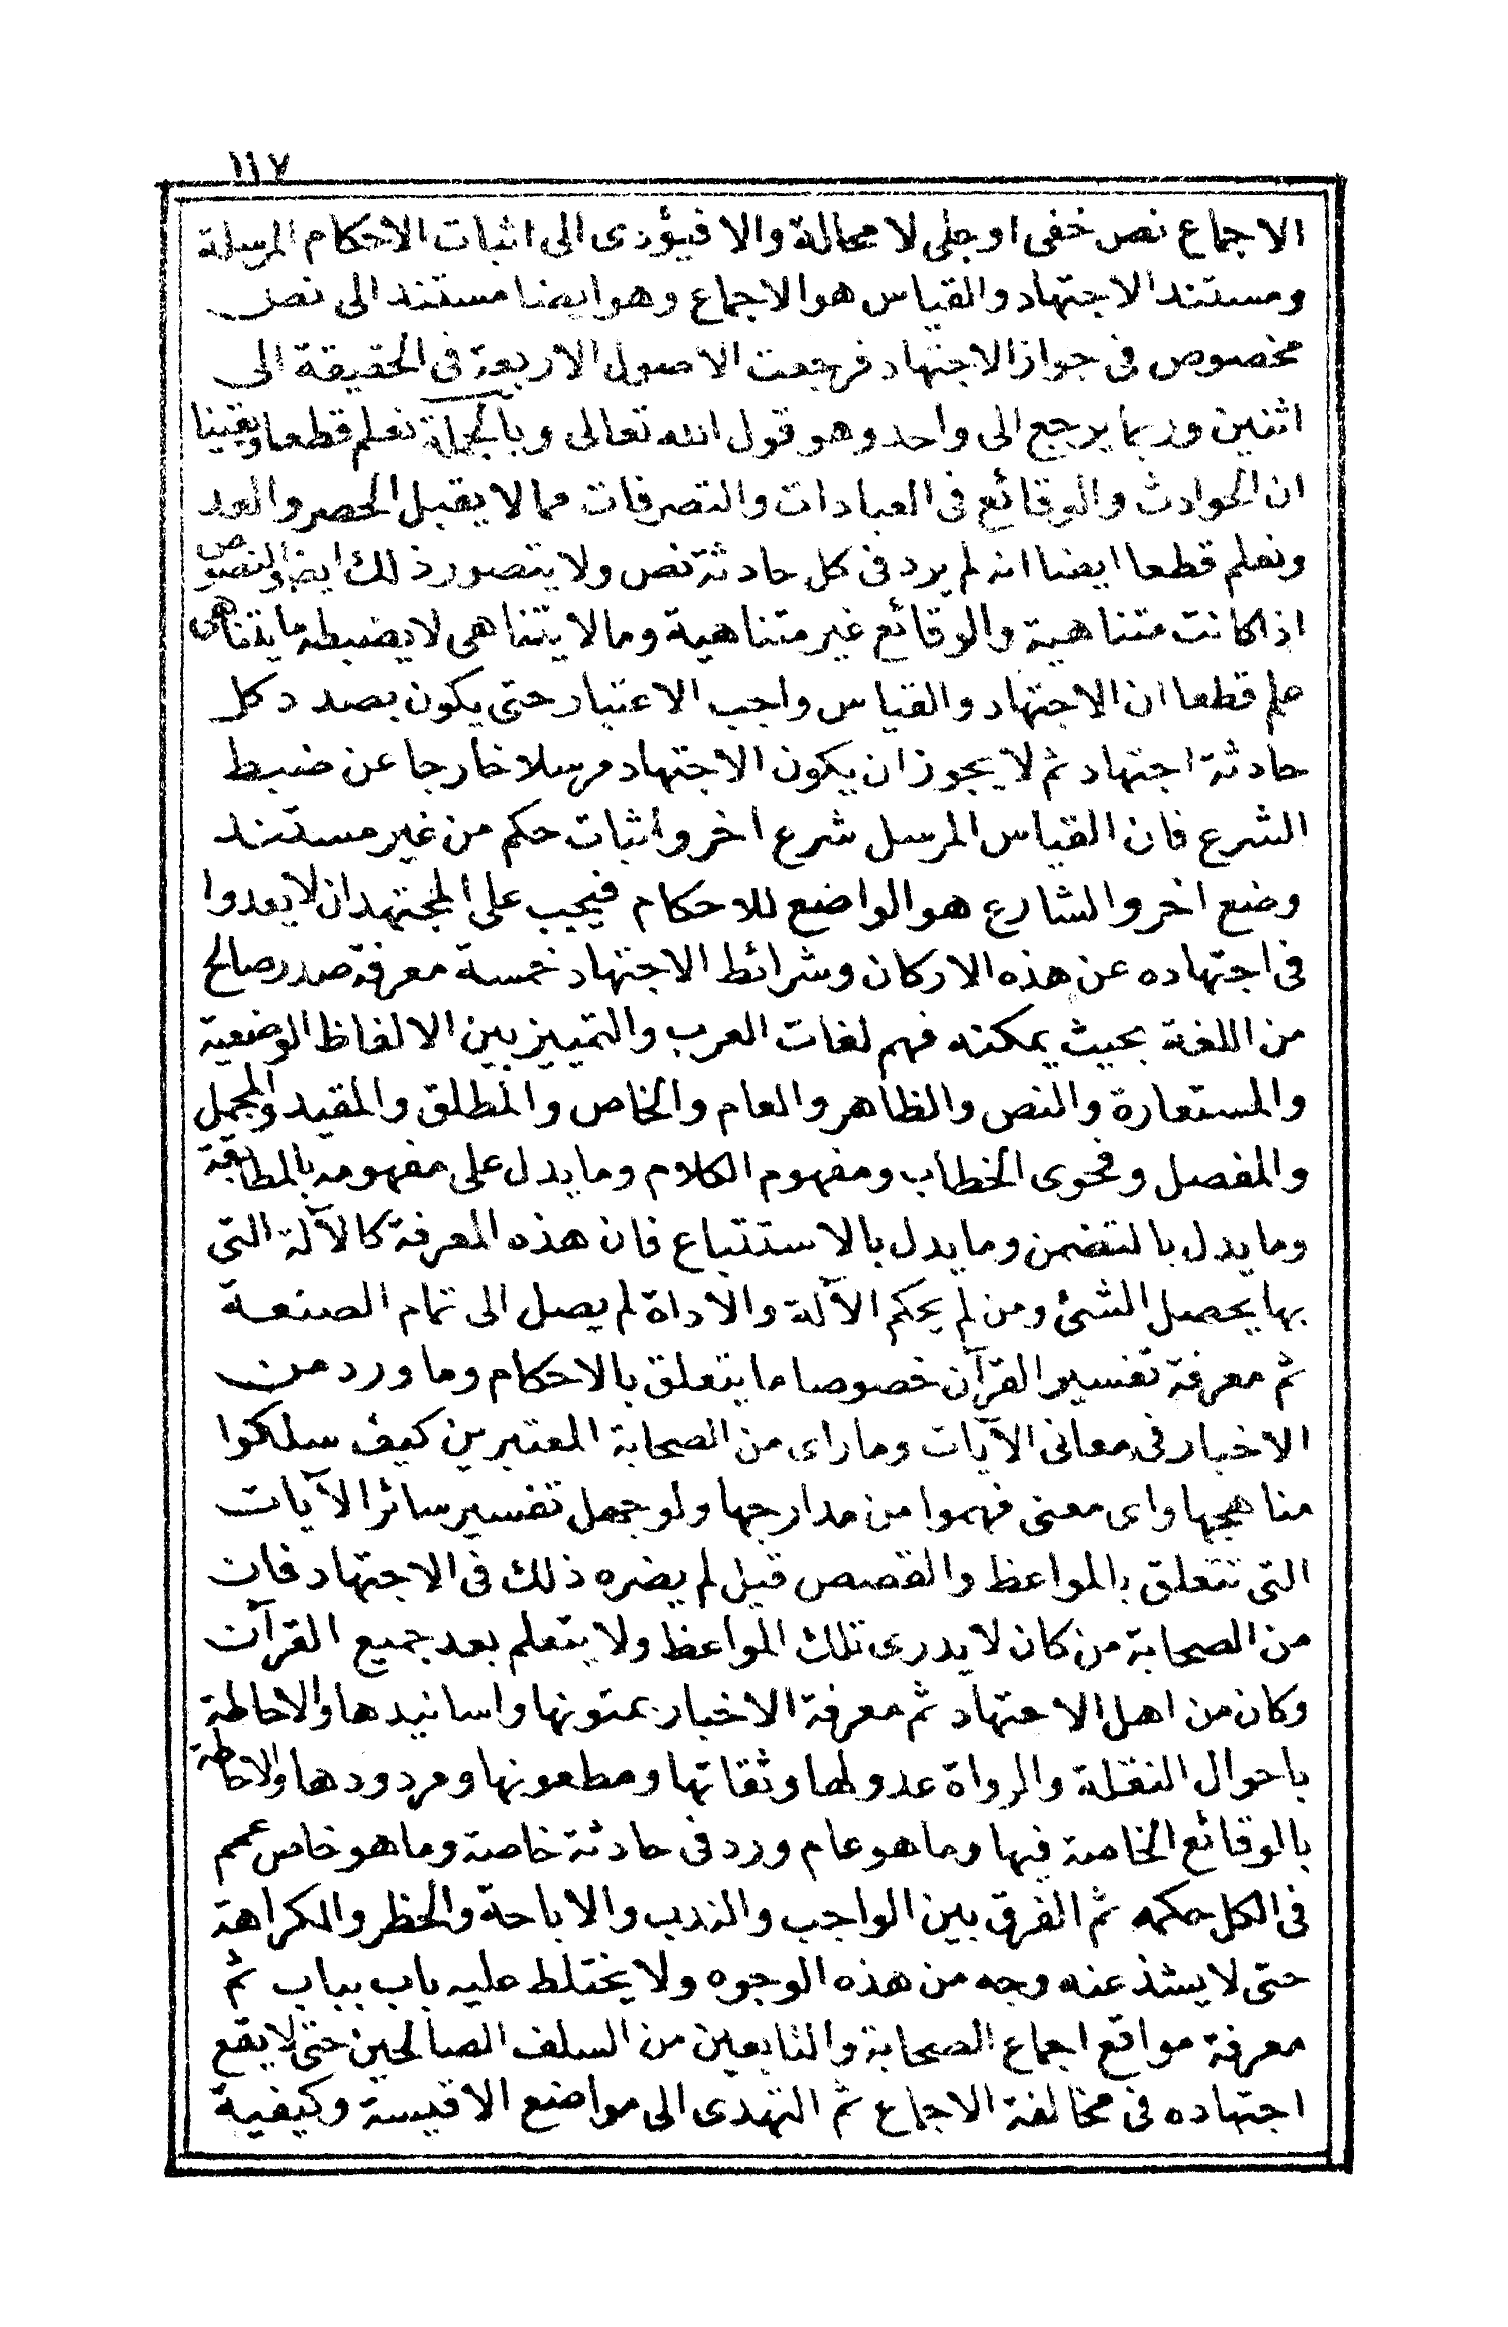 ١١٧
الاجماع نص خفى او جلى لا محالة والا فيؤدى الى اثبات الاحكام المرسلة
ومستند الاجتهاد والقياس هو الاجماع وهو ايضا مستند الى نص
مخصوص فى جواز الاجتهاد فرجعت الاصول الاربعة فى الحقيقة الى
اثنين وربما يرجع الى واحد وهو قول الله تعالى وبالجملة نعلم قطعا ويقينا
ان الحوادث والوقائع فى العبادات والتصرفات مما لا يقبل الحصر والعد
ونعلم قطعا ايضا انه لم يرد فى كل حادثة نص ولا يتصور ذلك ايضا والنصوص
اذا كانت متناهية والوقائع غير متناهية وما لا يتناهى لا يضبطه ما يتناهى
علم قطعا ان الاجتهاد والقياس واجب الاعتبار حتى يكون بصدد كل
حادثة اجتهاد ثم لا يجوز ان يكون الاجتهاد مرسلا خارجا عن ضبط
الشرع فان القياس المرسل شرع اخر واثبات حكم من غير مستند
وضع اخر والشارع هو الواضع للاحكام فيجب على المجتهد ان لا يعدوا
فى اجتهاده عن هذه الاركان وشرائط الاجتهاد خمسة معرفة صدر صالح
من اللغة بحيث يمكنه فهم لغات العرب والتمييز بين الالفاظ الوضعية
والمستعارة والنص والظاهر والعام والخاص والمطلق والمقيد والمجمل
والمفصل وفحوى الخطاب ومفهوم الكلام وما يدل على مفهومه بالمطابقة
وما يدل بالتضمن وما يدل بالاستتباع فان هذه المعرفة كالآلة التى
بها يحصل الشئ ومن لم يحكم الآلة والاداة لم يصل الى تمام الصنعة
ثم معرفة تفسير القرآن خصوصا ما يتعلق بالاحكام وما ورد من
الاخبار فى معانى الآيات وما راى من الصحابة المعتبرين كيف سلكوا
مناهجها واى معنى فهموا من مدارجها ولو جهل تفسير سائر الآيات
التى تتعلق بالمواعظ والقصص قيل لم يضره ذلك فى الاجتهاد فان
من الصحابة من كان لا يدرى تلك المواعظ ولا يتعلم بعد جميع القرآن
وكان من اهل الاجتهاد ثم معرفة الاخبار بمتونها واسانيدها والاحاطة
باحوال النقلة والرواة عدولها وثقاتها ومطعونها ومردودها والاحاطة
بالوقائع الخاصة فيها وما هو عام ورد فى حادثة خاصة وما هو خاص عمم
فى الكل حكمه ثم الفرق بين الواجب والندب والاباحة والحظر والكراهة
حتى لا يشذ عنه وجه من هذه الوجوه ولا يختلط عليه باب بباب ثم
معرفة مواقع اجماع الصحابة والتابعين من السلف الصالحين حتى لا يقع
اجتهاده فى مخالفة الاجماع ثم التهدى الى مواضع الاقيسة وكيفية